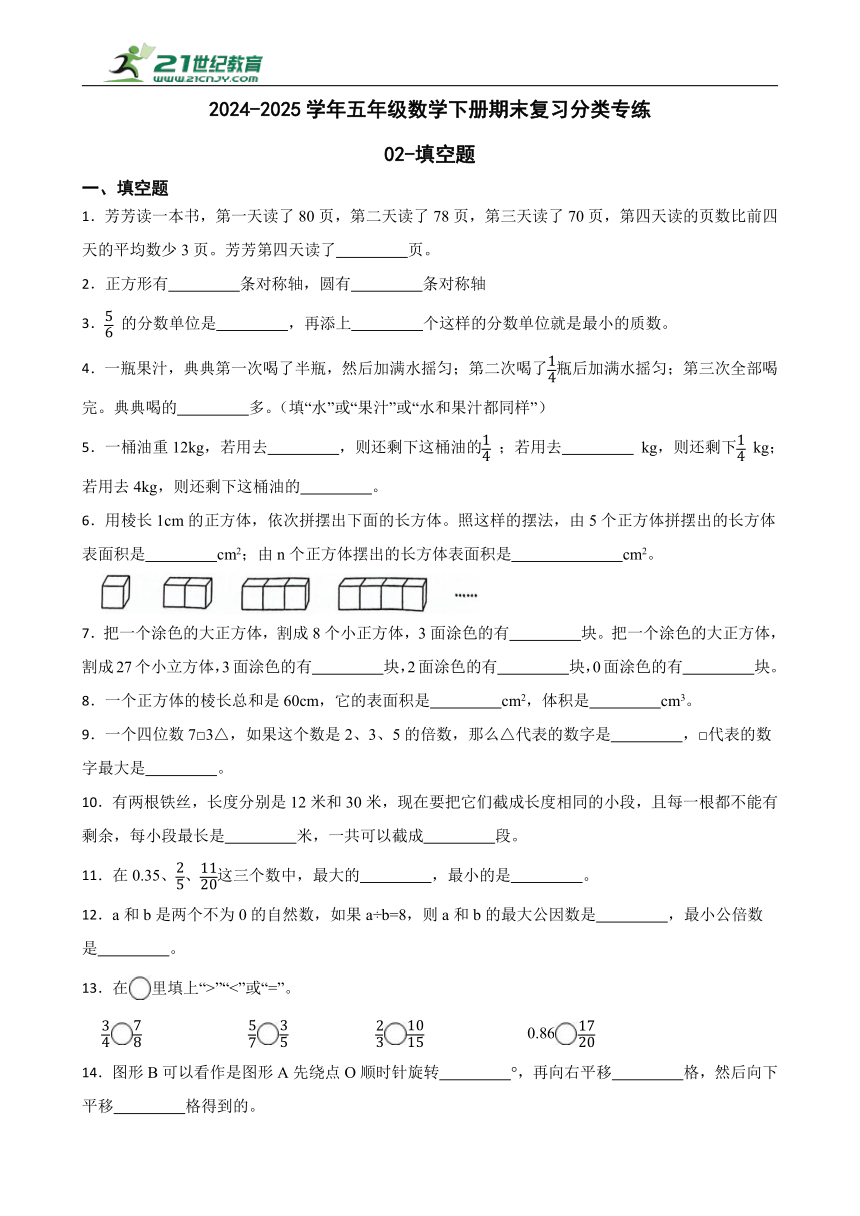 21世纪教育
WWW.21CNJY.COM
2024-2025学年五年级数学下册期末复习分类专练
02-填空题
一、填空题
1. 芳芳读一本书，第一天读了 80 页，第二天读了 78 页，第三天读了 70 页，第四天读的页数比前四
天的平均数少 3 页。芳芳第四天读了________页。
2. 正方形有________条对称轴，圆有________条对称轴
3. 5/6 的分数单位是________，再添上________个这样的分数单位就是最小的质数。
4. 一瓶果汁，典典第一次喝了半瓶，然后加满水摇匀；第二次喝了1/4瓶后加满水摇匀；第三次全部喝
完。典典喝的________多。（填“水”或“果汁”或“水和果汁都同样”）
5. 一桶油重 12kg，若用去________，则还剩下这桶油的1/4 ；若用去________ kg，则还剩下1/4 kg；
若用去 4kg，则还剩下这桶油的________。
6. 用棱长 1cm 的正方体，依次拼摆出下面的长方体。照这样的摆法，由 5 个正方体拼摆出的长方体
表面积是________cm²；由 n 个正方体摆出的长方体表面积是____________cm²。
……
7. 把一个涂色的大正方体，割成 8 个小正方体，3 面涂色的有________块。把一个涂色的大正方体，
割成 27 个小立方体，3 面涂色的有________块，2 面涂色的有________块，0 面涂色的有________块。
8. 一个正方体的棱长总和是 60cm，它的表面积是________cm²，体积是________cm³。
9. 一个四位数 7□3△，如果这个数是 2、3、5 的倍数，那么△代表的数字是________，□代表的数
字最大是________。
10. 有两根铁丝，长度分别是 12 米和 30 米，现在要把它们截成长度相同的小段，且每一根都不能有
剩余，每小段最长是________米，一共可以截成________段。
11. 在 0.35、2/5、11/20这三个数中，最大的________，最小的是________。
12. a 和 b 是两个不为 0 的自然数，如果 a÷b=8，则 a 和 b 的最大公因数是________，最小公倍数
是________。
13. 在○里填上“>”“<”或“=”。
3/4○7/8 5/7○3/5 2/3○10/15 0.86○17/20
14. 图形 B 可以看作是图形 A 先绕点 O 顺时针旋转________°，再向右平移________格，然后向下
平移________格得到的。